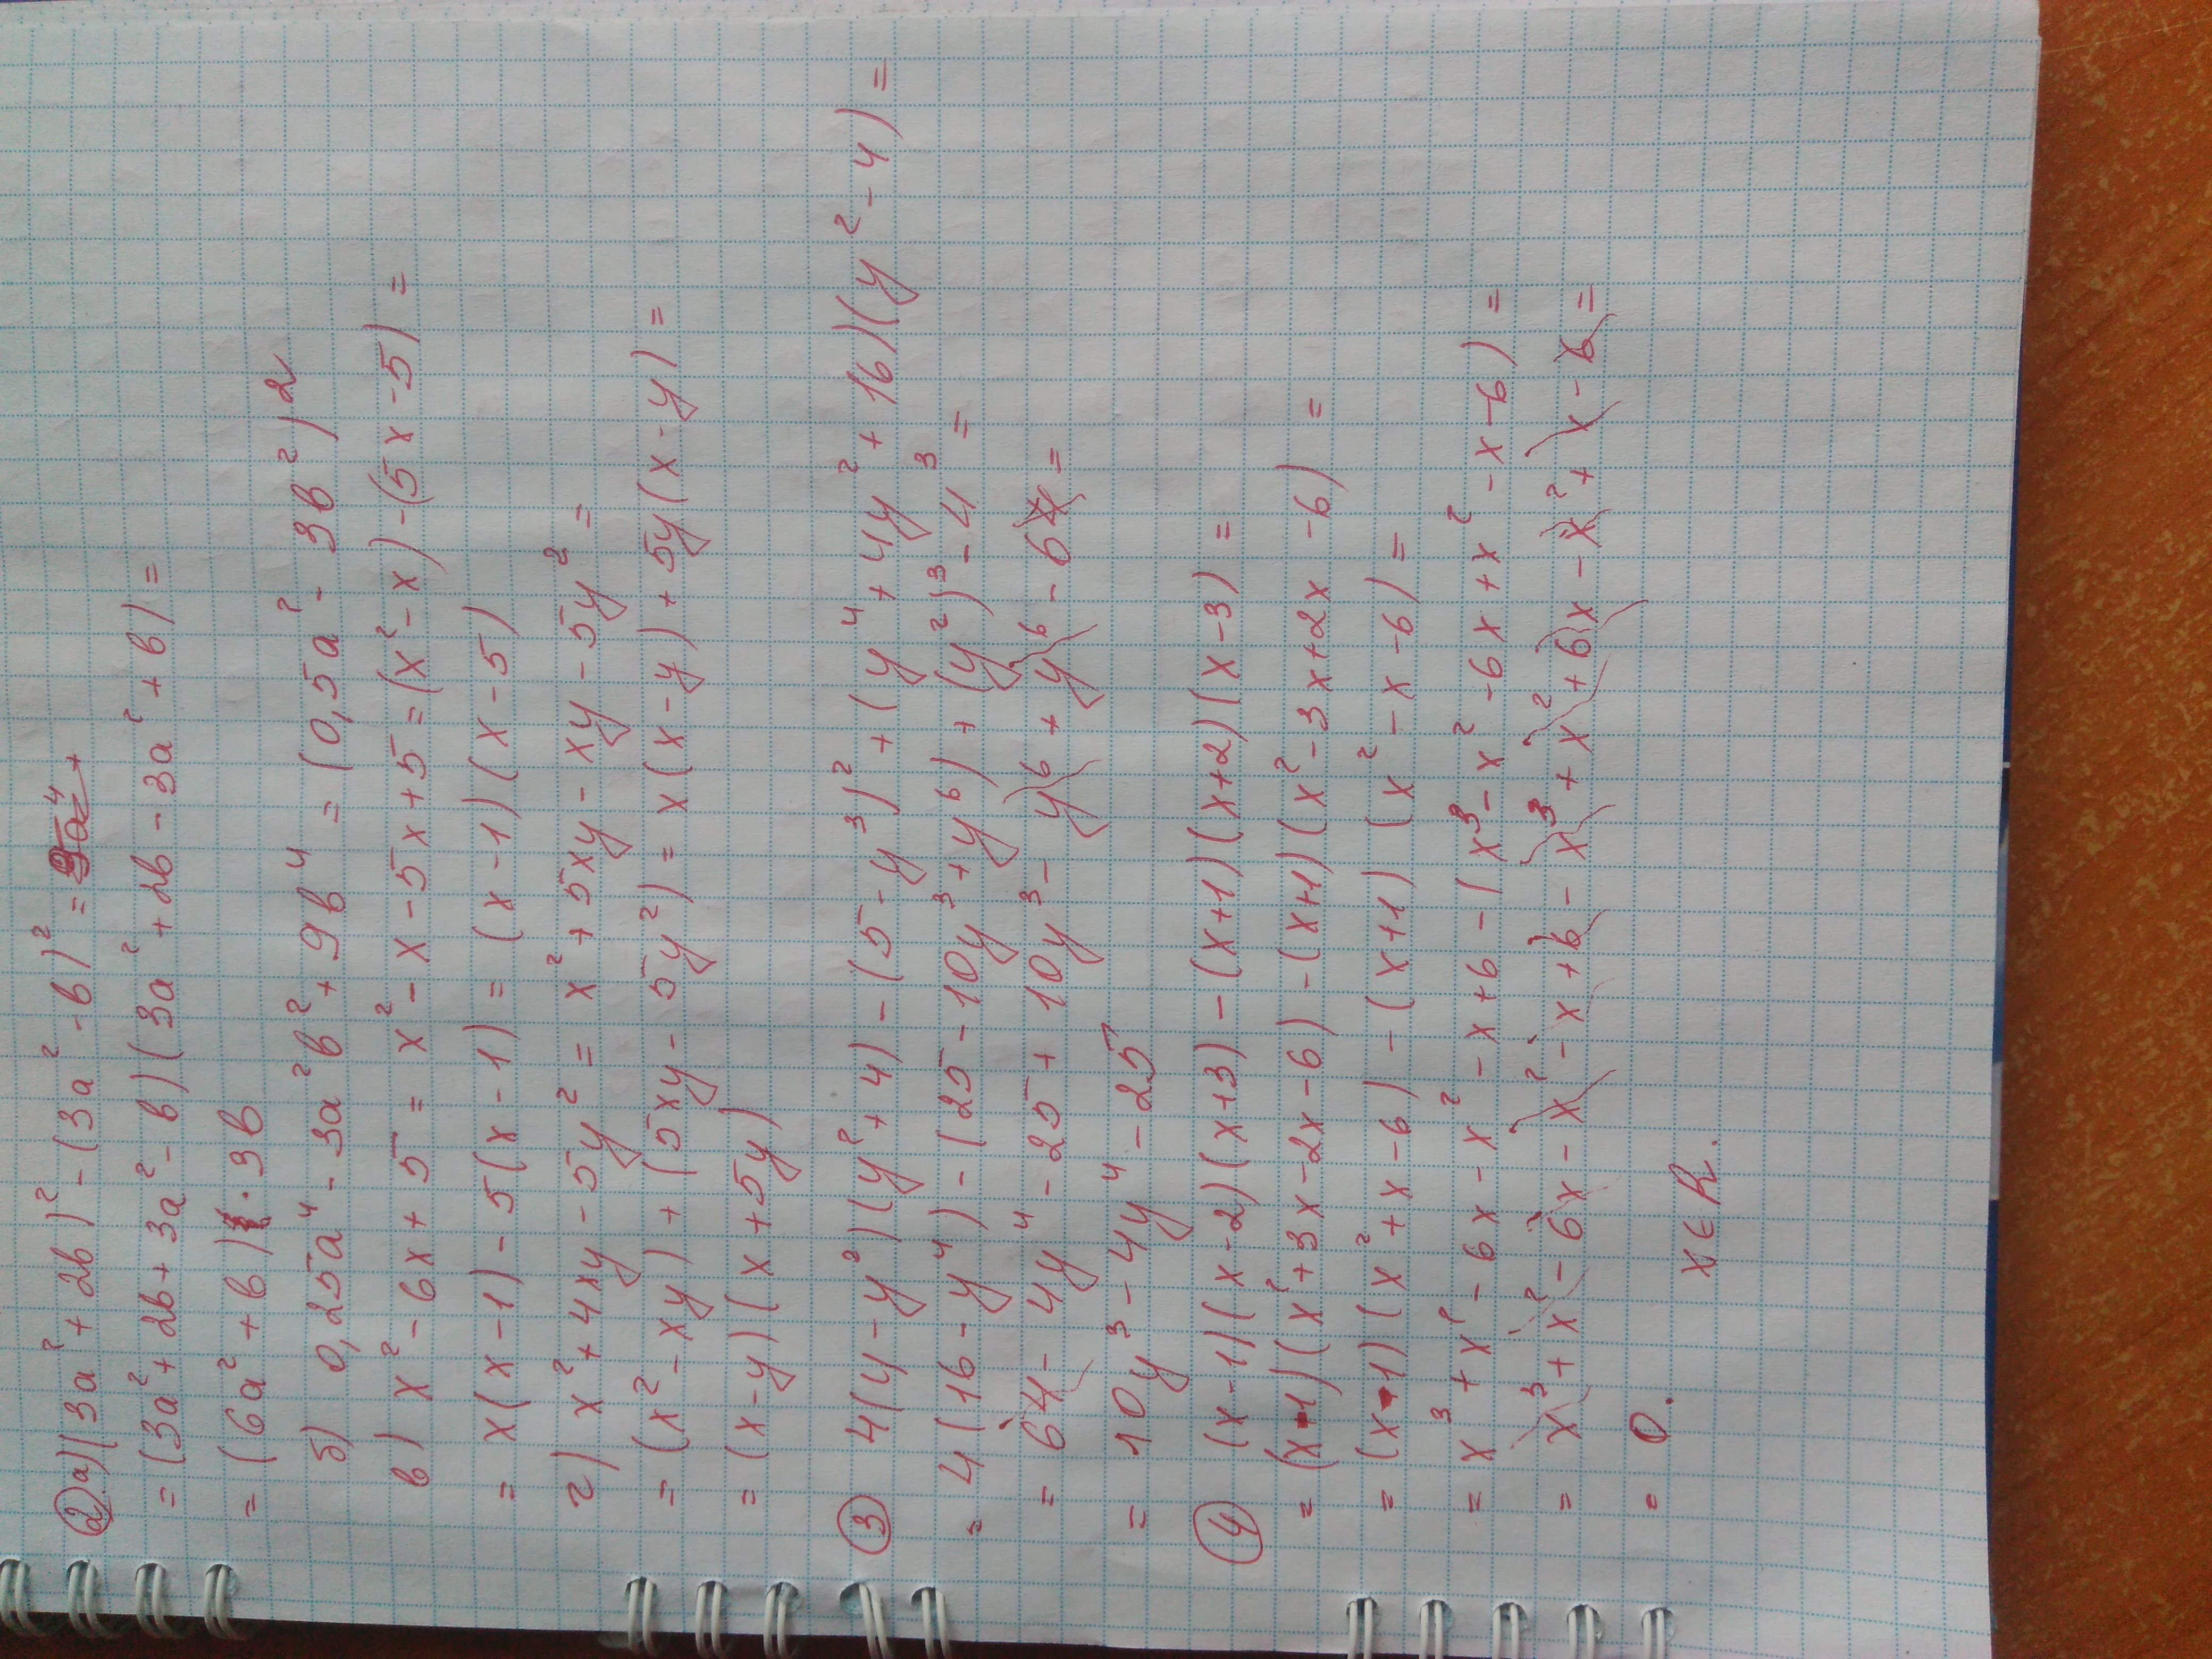 2) а) (3a² + 2b)² - (3a² - b)² =
= (3a² + 2b + 3a² - b)(3a² + 2b - 3a² + b) =
= (6a² + b) · 3b
б) 0,25a⁴ - 3a²b² + 9b⁴ = (0,5a² - 3b²)²
в) x² - 6x + 5 = x² - x - 5x + 5 = (x² - x) - (5x - 5) =
= x(x - 1) - 5(x - 1) = (x - 1)(x - 5)
г) x² + 4xy - 5y² = x² + 5xy - xy - 5y² =
= (x² - xy) + (5xy - 5y²) = x(x - y) + 5y(x - y) =
= (x - y)(x + 5y)
3) 4(4 - y²)(y² + 4) - (5 - y³)² + (y⁴ + 4y² + 16)(y² - 4) =
= 4(16 - y⁴) - (25 - 10y³ + y⁶) + (y²)³ - 4³ =
= 64 - 4y⁴ - 25 + 10y³ - y⁶ + y⁶ - 64 =
= 10y³ - 4y⁴ - 25
4) (x - 1)(x - 2)(x + 3) - (x + 1)(x + 2)(x - 3) =
= (x - 1)(x² + 3x - 2x - 6) - (x + 1)(x² - 3x + 2x - 6) =
= (x - 1)(x² + x - 6) - (x + 1)(x² - x - 6) =
= x³ + x² - 6x - x² - x + 6 - (x³ - x² - 6x + x² - x - 6) =
= x³ + x² - 6x - x² - x + 6 - x³ + x² + 6x - x² + x - 6 =
= 0.
x ∈ R.